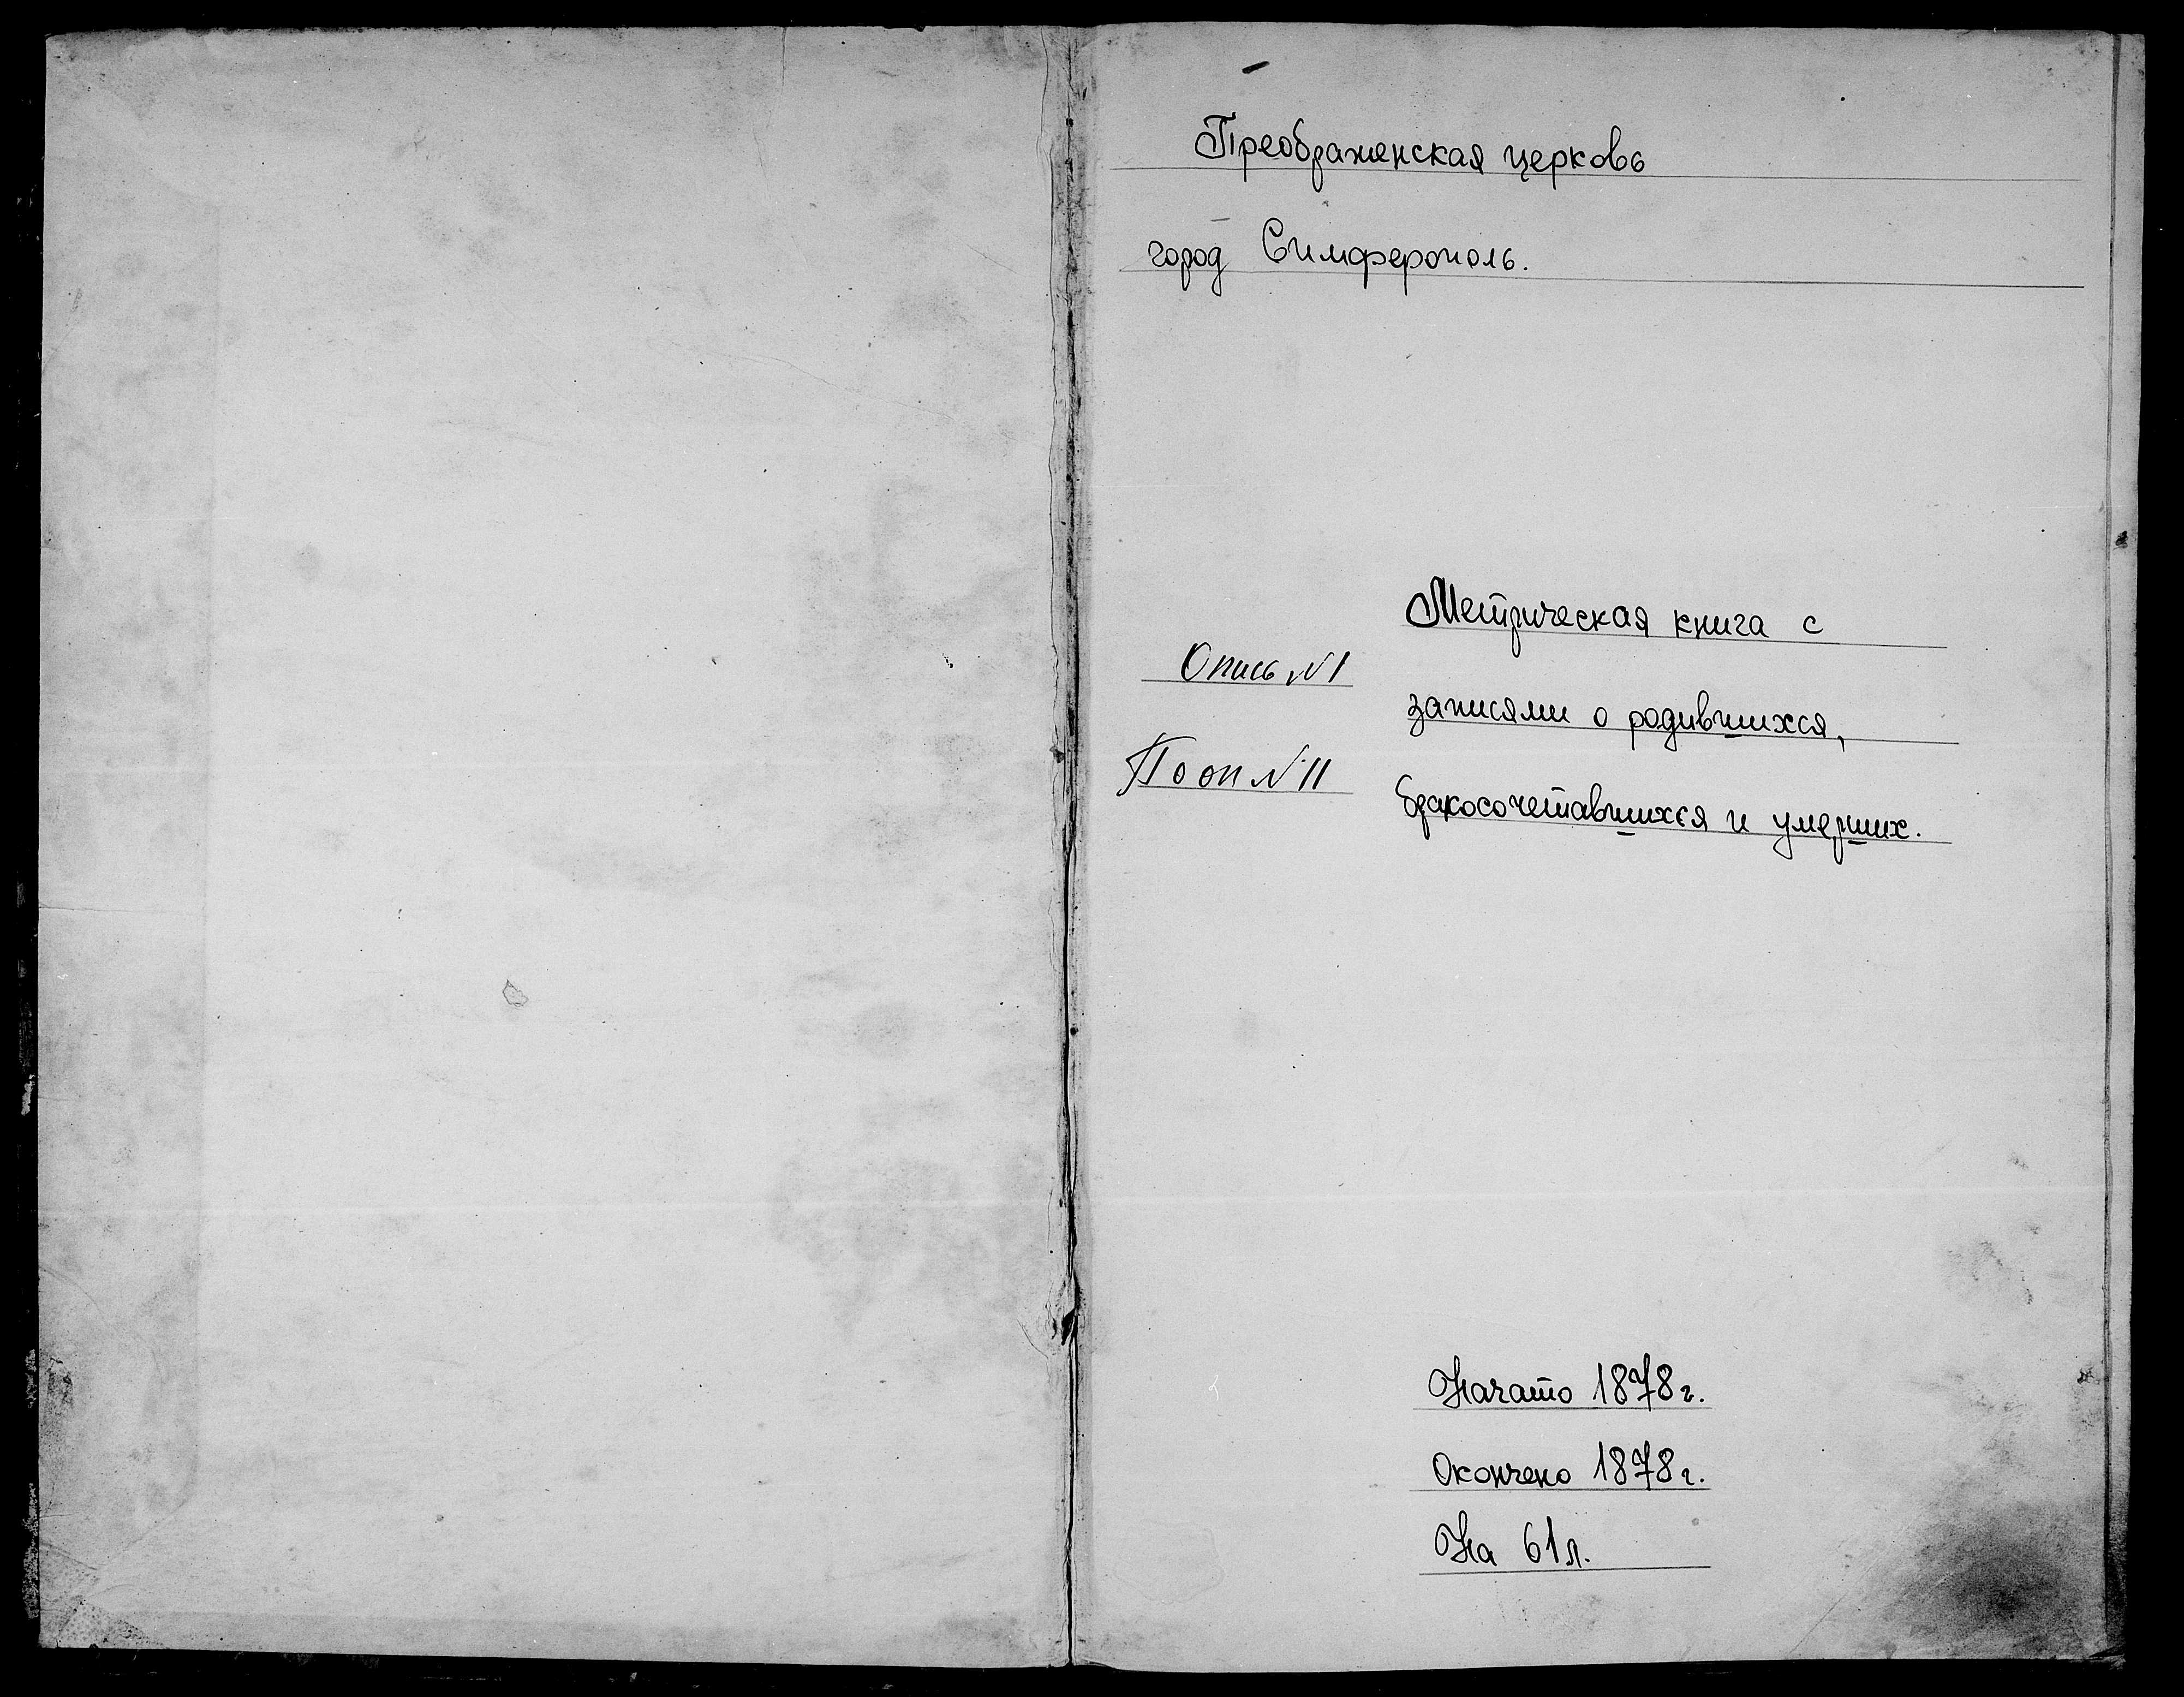 Преображенская церковь
город Симферополь.
Метрическая книга с
Опись №1
записями о родившихся,
По оп №11
бракосочетавшихся и умерших.
Начато 1878 г.
Окончено 1878 г.
На 61 л.